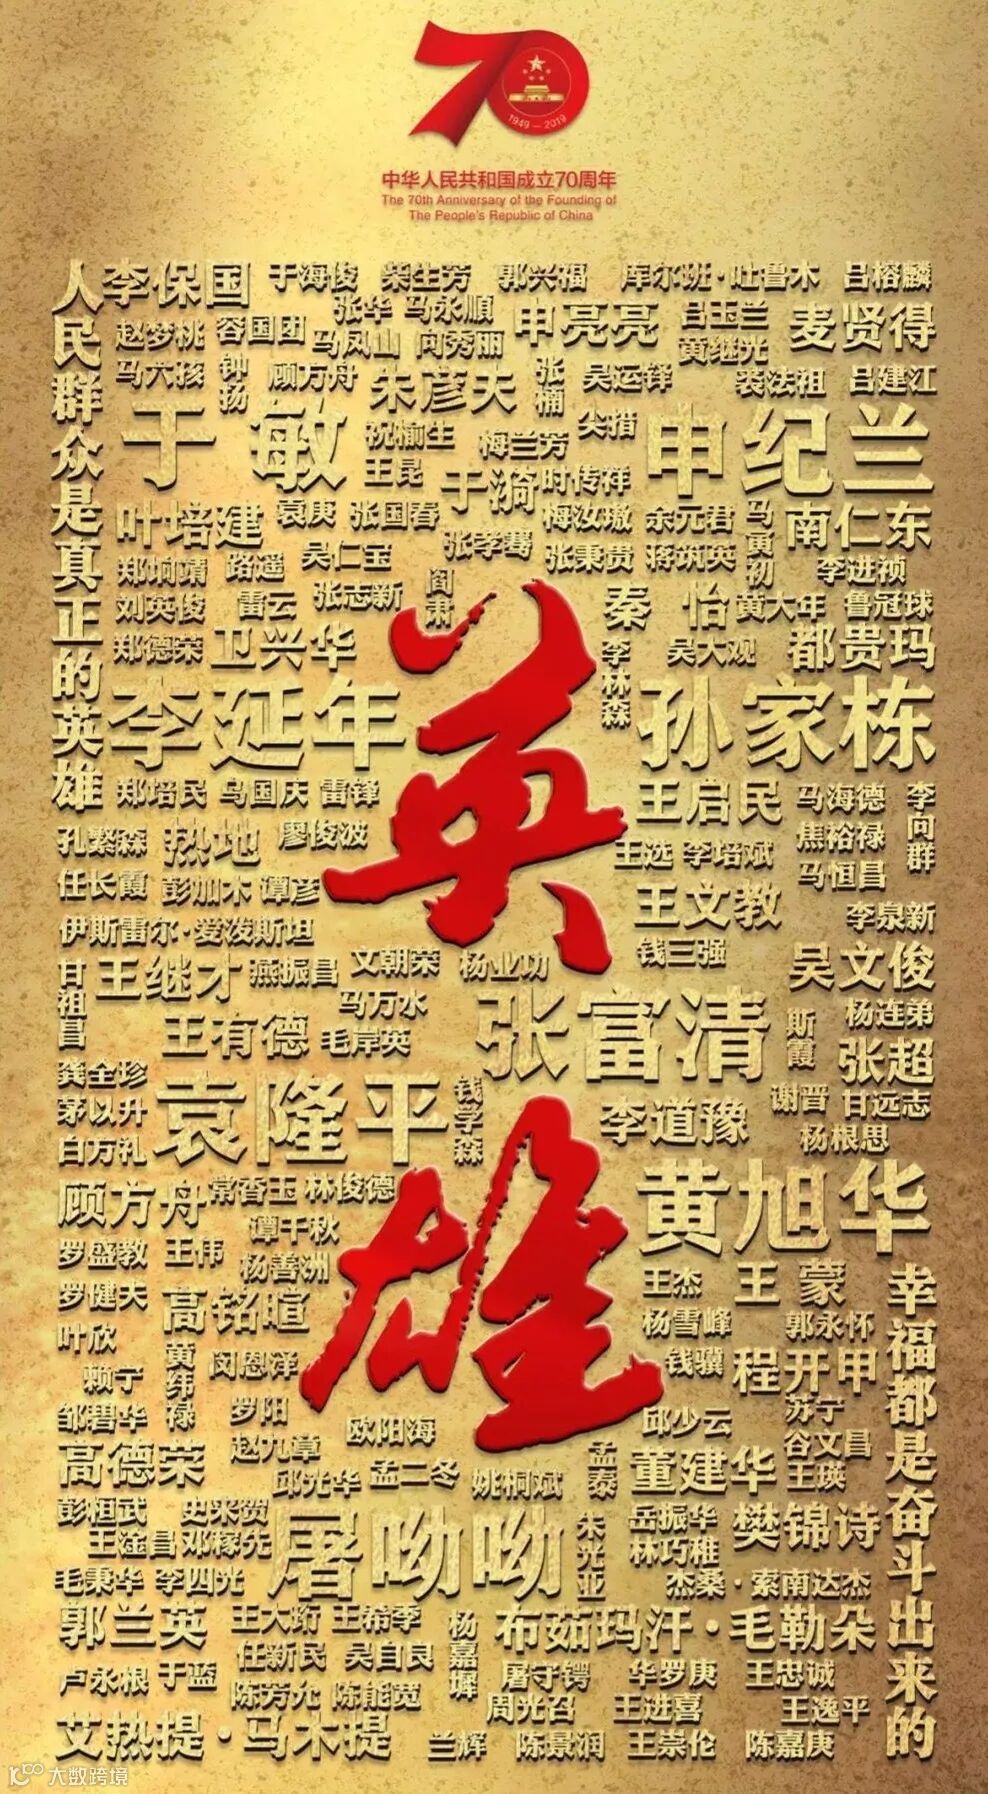 70
1949 — 2019
中华人民共和国成立70周年
The 70th Anniversary of the Founding of
The People's Republic of China
人民群众是真正的英雄
李保国 于海俊 柴生芳 郭兴福 库尔班·吐鲁木 吕榕麟
赵梦桃 容国团 张华 马永順 申亮亮 吕玉兰 麦贤得
马凤山 向秀丽 黄继光
马六孩 钟扬 顾方舟 朱彦夫 张楠 吴运铎 裴法祖 吕建江
于敏 祝榆生 梅兰芳 尖措 申纪兰
王昆 于漪 时传祥
叶培建 袁庚 张国春 梅汝璈 余元君 马勇初 南仁东
郑垧靖 路遥 吴仁宝 张孝骞 张秉贵 蒋筑英 李进祯
刘英俊 雷云 张志新 阎肃 秦怡 黄大年 鲁冠球
郑德荣 卫兴华 李林森 吴大观 都贵玛
李延年 孙家栋
英
郑培民 乌国庆 雷锋 王启民 马海德 李向群
孔繁森 热地 廖俊波 王选 李培斌 焦裕禄
任长霞 彭加木 谭彦 王文教 马恒昌
伊斯雷尔·爱泼斯坦 钱三强 李泉新
甘祖昌 王继才 燕振昌 文朝荣 杨业功 吴文俊
王有德 马万水 张富清 斯霞 杨连弟
毛岸英 张超
龚全珍 袁隆平 钱学森 李道豫 谢晋 甘远志
茅以升 杨根思
白万礼
顾方舟 常香玉 林俊德 黄旭华
谭千秋
雄
罗盛教 王伟 杨善洲 王杰 王蒙
罗健夫 高铭暄 杨雪峰 郭永怀
叶欣 黄纬禄 闵恩泽 钱骥 程开甲
赖宁 罗阳 苏宁
邹碧华 欧阳海 邱少云 谷文昌
高德荣 赵九章 孟泰 董建华 王瑛
邱光华 孟二冬 姚桐斌
彭桓武 史来贺 屠呦呦 朱光亚 岳振华 樊锦诗
王淦昌 邓稼先 林巧稚
毛秉华 李四光 杰桑·索南达杰
郭兰英 王大珩 王希季 杨嘉墀 布茹玛汗·毛勒朵
卢永根 于蓝 任新民 吴自良 屠守锷 华罗庚 王忠诚
陈芳允 陈能宽 周光召 王进喜 王逸平
艾热提·马木提 兰辉 陈景润 王崇伦 陈嘉庚
幸福都是奋斗出来的
大数跨境